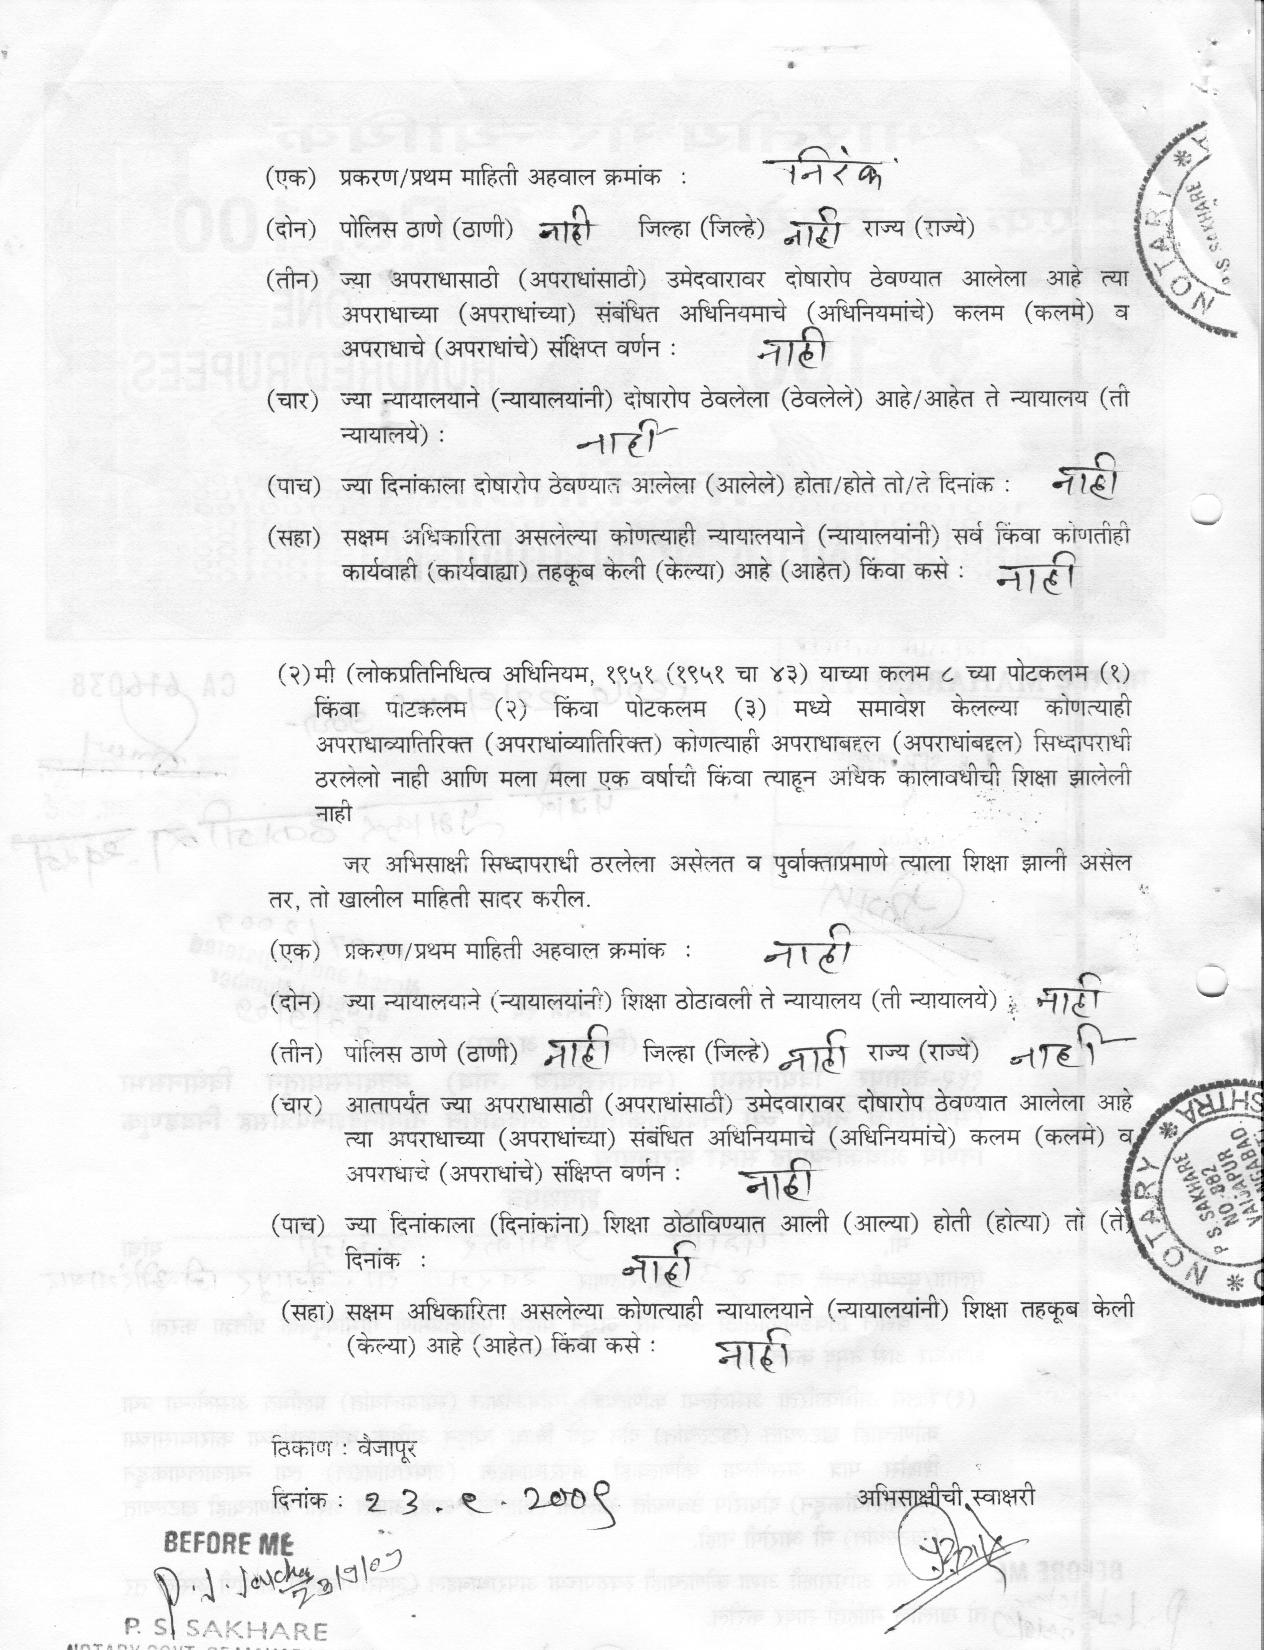 (एक) प्रकरण/प्रथम माहिती अहवाल क्रमांक : निरंक
(दोन) पोलिस ठाणे (ठाणी) नाही जिल्हा (जिल्हे) नाही राज्य (राज्ये)
(तीन) ज्या अपराधासाठी (अपराधांसाठी) उमेदवारावर दोषारोप ठेवण्यात आलेला आहे त्या
अपराधाच्या (अपराधांच्या) संबंधित अधिनियमाचे (अधिनियमांचे) कलम (कलमे) व
अपराधाचे (अपराधांचे) संक्षिप्त वर्णन : नाही
(चार) ज्या न्यायालयाने (न्यायालयांनी) दोषारोप ठेवलेला (ठेवलेले) आहे/आहेत ते न्यायालय (ती
न्यायालये) : नाही
(पाच) ज्या दिनांकाला दोषारोप ठेवण्यात आलेला (आलेले) होता/होते तो/ते दिनांक : नाही
(सहा) सक्षम अधिकारिता असलेल्या कोणत्याही न्यायालयाने (न्यायालयांनी) सर्व किंवा कोणतीही
कार्यवाही (कार्यवाह्या) तहकूब केली (केल्या) आहे (आहेत) किंवा कसे : नाही
(२) मी (लोकप्रतिनिधित्व अधिनियम, १९५१ (१९५१ चा ४३) याच्या कलम ८ च्या पोटकलम (१)
किंवा पोटकलम (२) किंवा पोटकलम (३) मध्ये समावेश केलल्या कोणत्याही
अपराधाव्यातिरिक्त (अपराधांव्यातिरिक्त) कोणत्याही अपराधाबद्दल (अपराधांबद्दल) सिध्दापराधी
ठरलेलो नाही आणि मला मला एक वर्षाची किंवा त्याहून अधिक कालावधीची शिक्षा झालेली
नाही
जर अभिसाक्षी सिध्दापराधी ठरलेला असेलत व पुर्वाक्ताप्रमाणे त्याला शिक्षा झाली असेल
तर, तो खालील माहिती सादर करील.
(एक) प्रकरण/प्रथम माहिती अहवाल क्रमांक : नाही
(दोन) ज्या न्यायालयाने (न्यायालयांनी) शिक्षा ठोठावली ते न्यायालय (ती न्यायालये) : नाही
(तीन) पोलिस ठाणे (ठाणी) नाही जिल्हा (जिल्हे) नाही राज्य (राज्ये) नाही
(चार) आतापर्यंत ज्या अपराधासाठी (अपराधांसाठी) उमेदवारावर दोषारोप ठेवण्यात आलेला आहे
त्या अपराधाच्या (अपराधांच्या) संबंधित अधिनियमाचे (अधिनियमांचे) कलम (कलमे) व
अपराधाचे (अपराधांचे) संक्षिप्त वर्णन : नाही
(पाच) ज्या दिनांकाला (दिनांकांना) शिक्षा ठोठाविण्यात आली (आल्या) होती (होत्या) तो (ते)
दिनांक : नाही
(सहा) सक्षम अधिकारिता असलेल्या कोणत्याही न्यायालयाने (न्यायालयांनी) शिक्षा तहकूब केली
(केल्या) आहे (आहेत) किंवा कसे : नाही
ठिकाण : वैजापूर
दिनांक : 23.9.2009
अभिसाक्षीची स्वाक्षरी
BEFORE ME
23/9/09
P. S. SAKHARE
NOTARY
S. SAKHARE
NOTARY
P S SAKHARE
NO. 882
VAIJAPUR